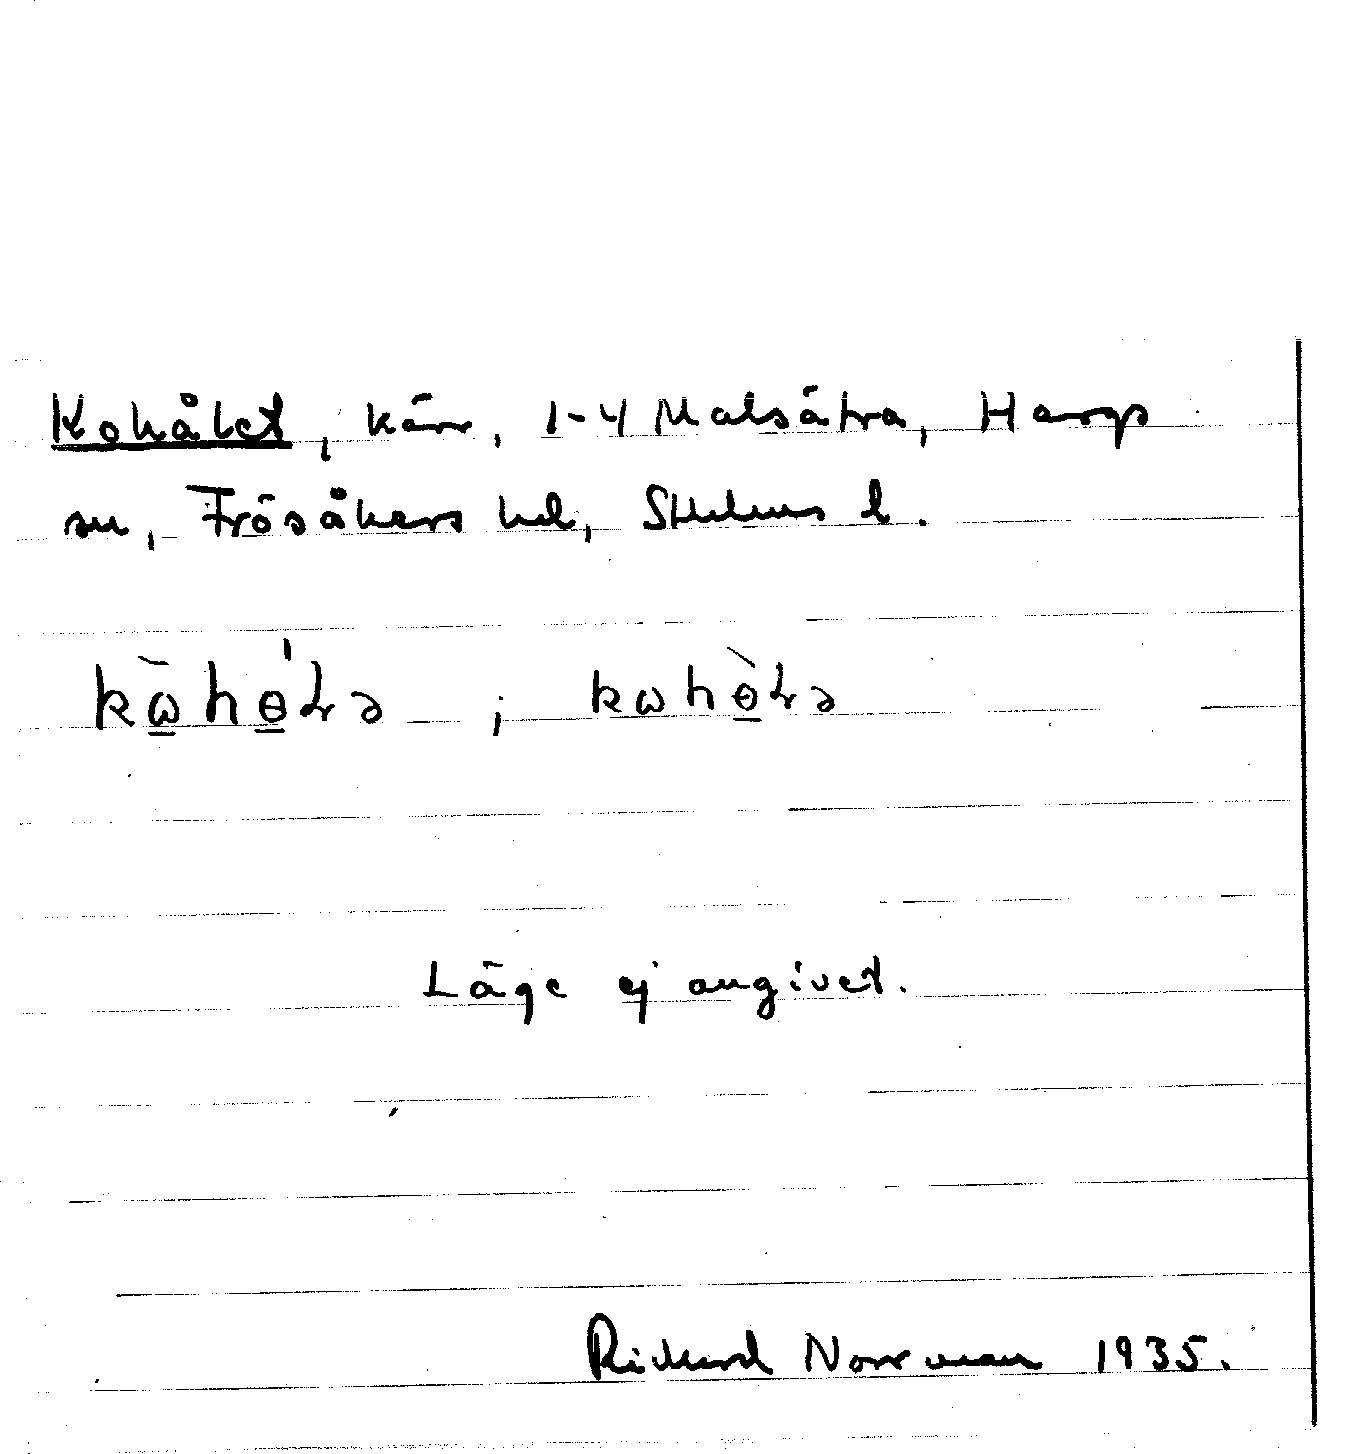 Kohålet, kärr, 1-4 Malsätra, Hargs
sn, Frösåkers hd, Sthlms l.
kὼ̲hɵ̲́ɫə ; kωhɵ̲̀ɫə
Läge ej angivet.
Rickard Norrman 1935.